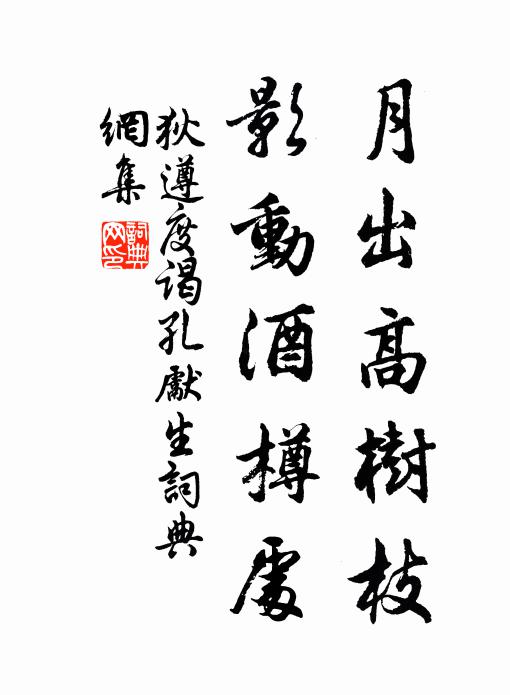 月出高樹枝
影動酒樽處
狄遵度謁孔獻生詞典
網集
詞典網印